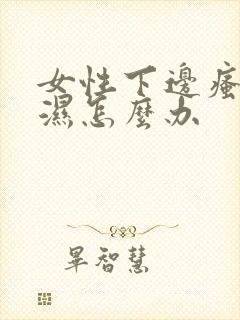 女性下邊瘙
濕怎麼办
畢智慧